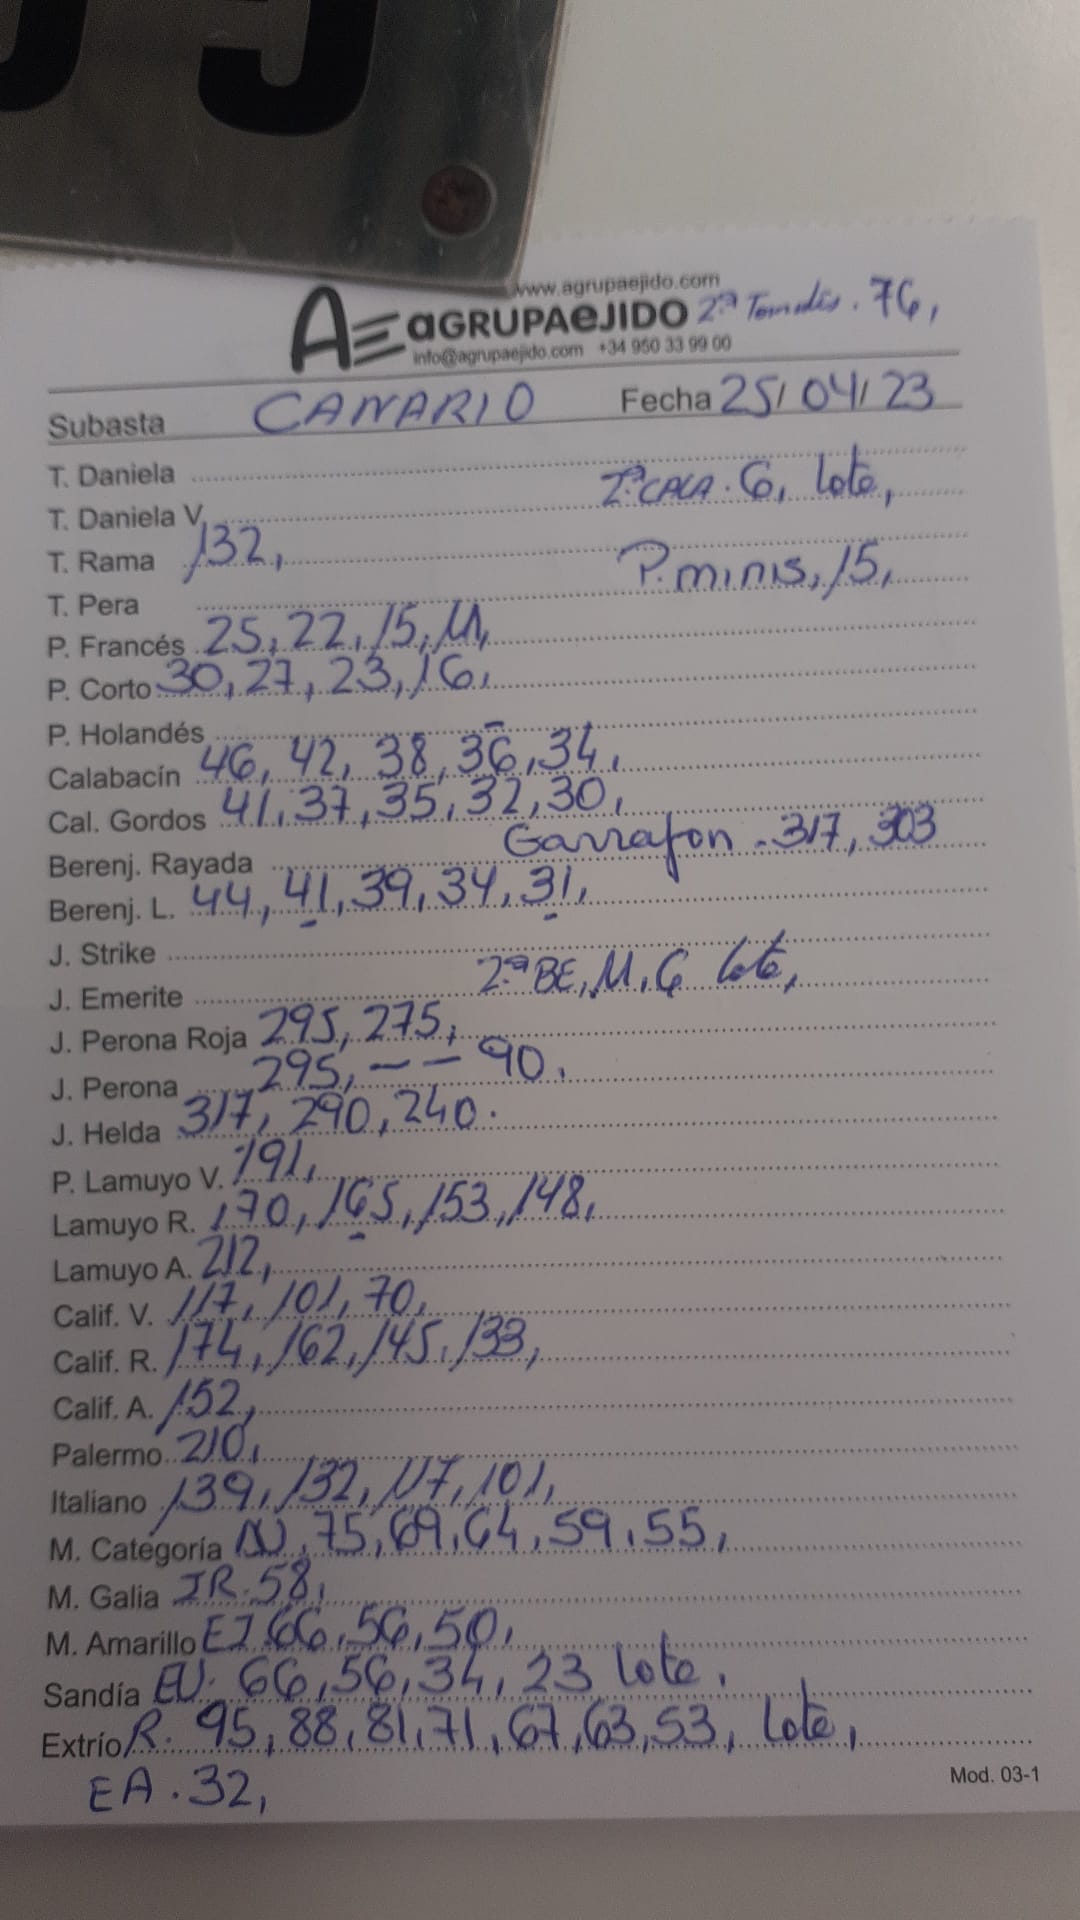 www.agrupaejido.com
AE aGRUPAeJIDO 2ª Tomates. 76,
info@agrupaejido.com +34 950 33 99 00
Subasta CANARIO Fecha 25/04/23
T. Daniela
2ª CALA. 6, lote,
T. Daniela V.
T. Rama 132,
P. minis, 15,
T. Pera
P. Francés 25, 22, 15, 11,
P. Corto 30, 27, 23, 16,
P. Holandés
Calabacín 46, 42, 38, 36, 34,
Cal. Gordos 41, 37, 35, 32, 30,
Garrafon - 317, 303
Berenj. Rayada
Berenj. L. 44, 41, 39, 34, 31,
J. Strike
2ª BE, 11, 6 lote,
J. Emerite
J. Perona Roja 295, 275,
J. Perona 295, - - 90.
J. Helda 317, 290, 240.
P. Lamuyo V. 191,
Lamuyo R. 170, 165, 153, 148,
Lamuyo A. 212,
Calif. V. 117, 101, 70,
Calif. R. 174, 162, 145, 133,
Calif. A. 152,
Palermo 210,
Italiano 139, 132, 117, 101,
M. Categoría 75, 69, 64, 59, 55,
M. Galia 58,
M. Amarillo 66, 56, 50,
Sandía 66, 56, 34, 23 lote,
Extrío R. 95, 88, 81, 71, 67, 63, 53, lote,
EA. 32,
Mod. 03-1